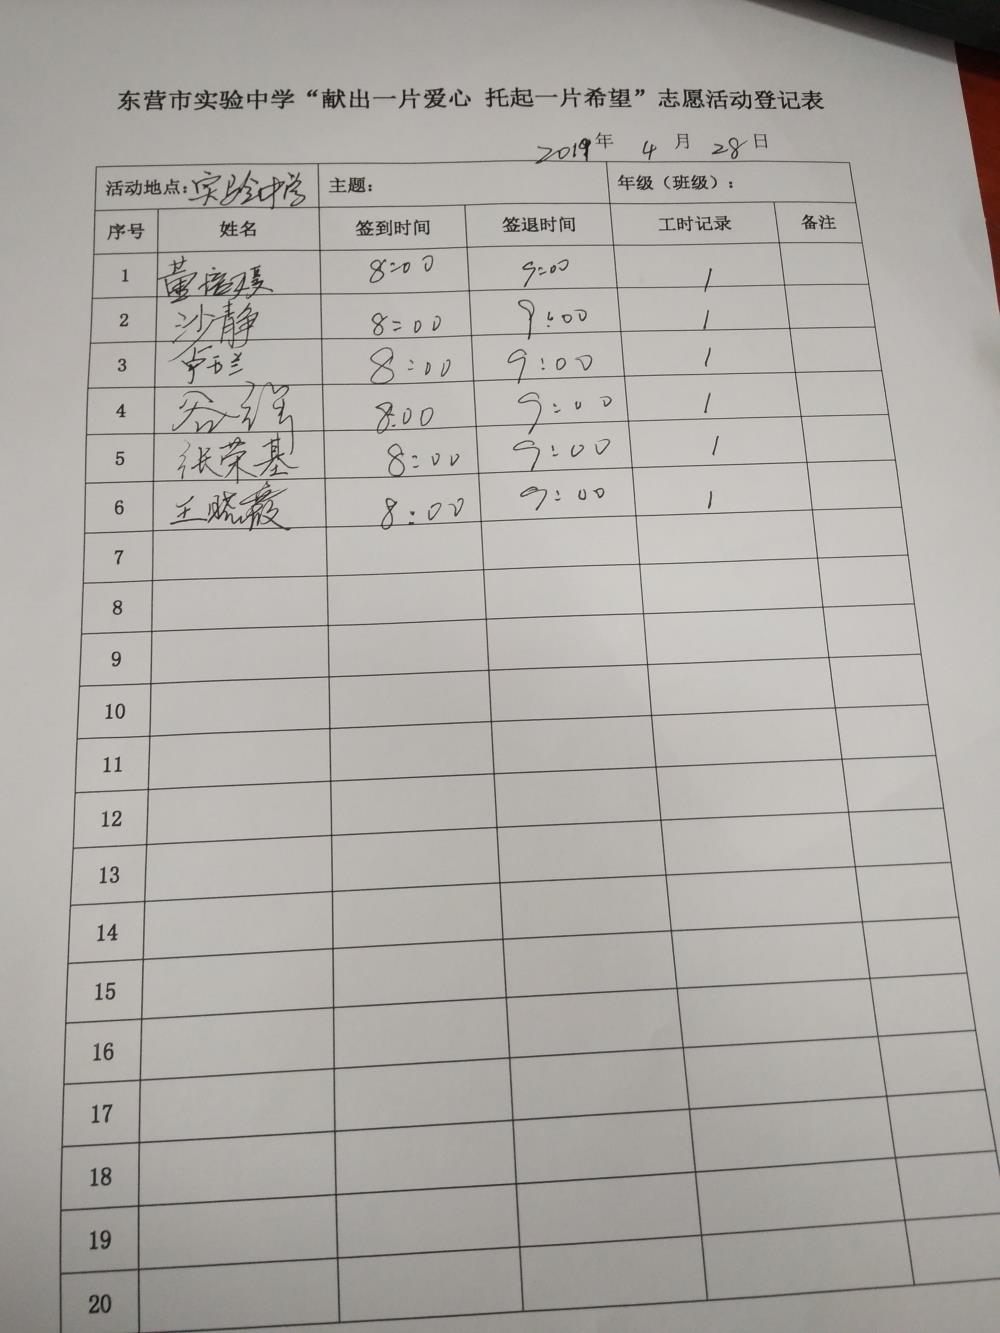 东营市实验中学“献出一片爱心 托起一片希望”志愿活动登记表
2019年 4月 28日
活动地点：实验中学 主题： 年级（班级）：
序号 姓名 签到时间 签退时间 工时记录 备注
1 8:00 9:00 1
2 沙静 8:00 9:00 1
3 8:00 9:00 1
4 8:00 9:00 1
5 张荣基 8:00 9:00 1
6 王晓霞 8:00 9:00 1
7
8
9
10
11
12
13
14
15
16
17
18
19
20